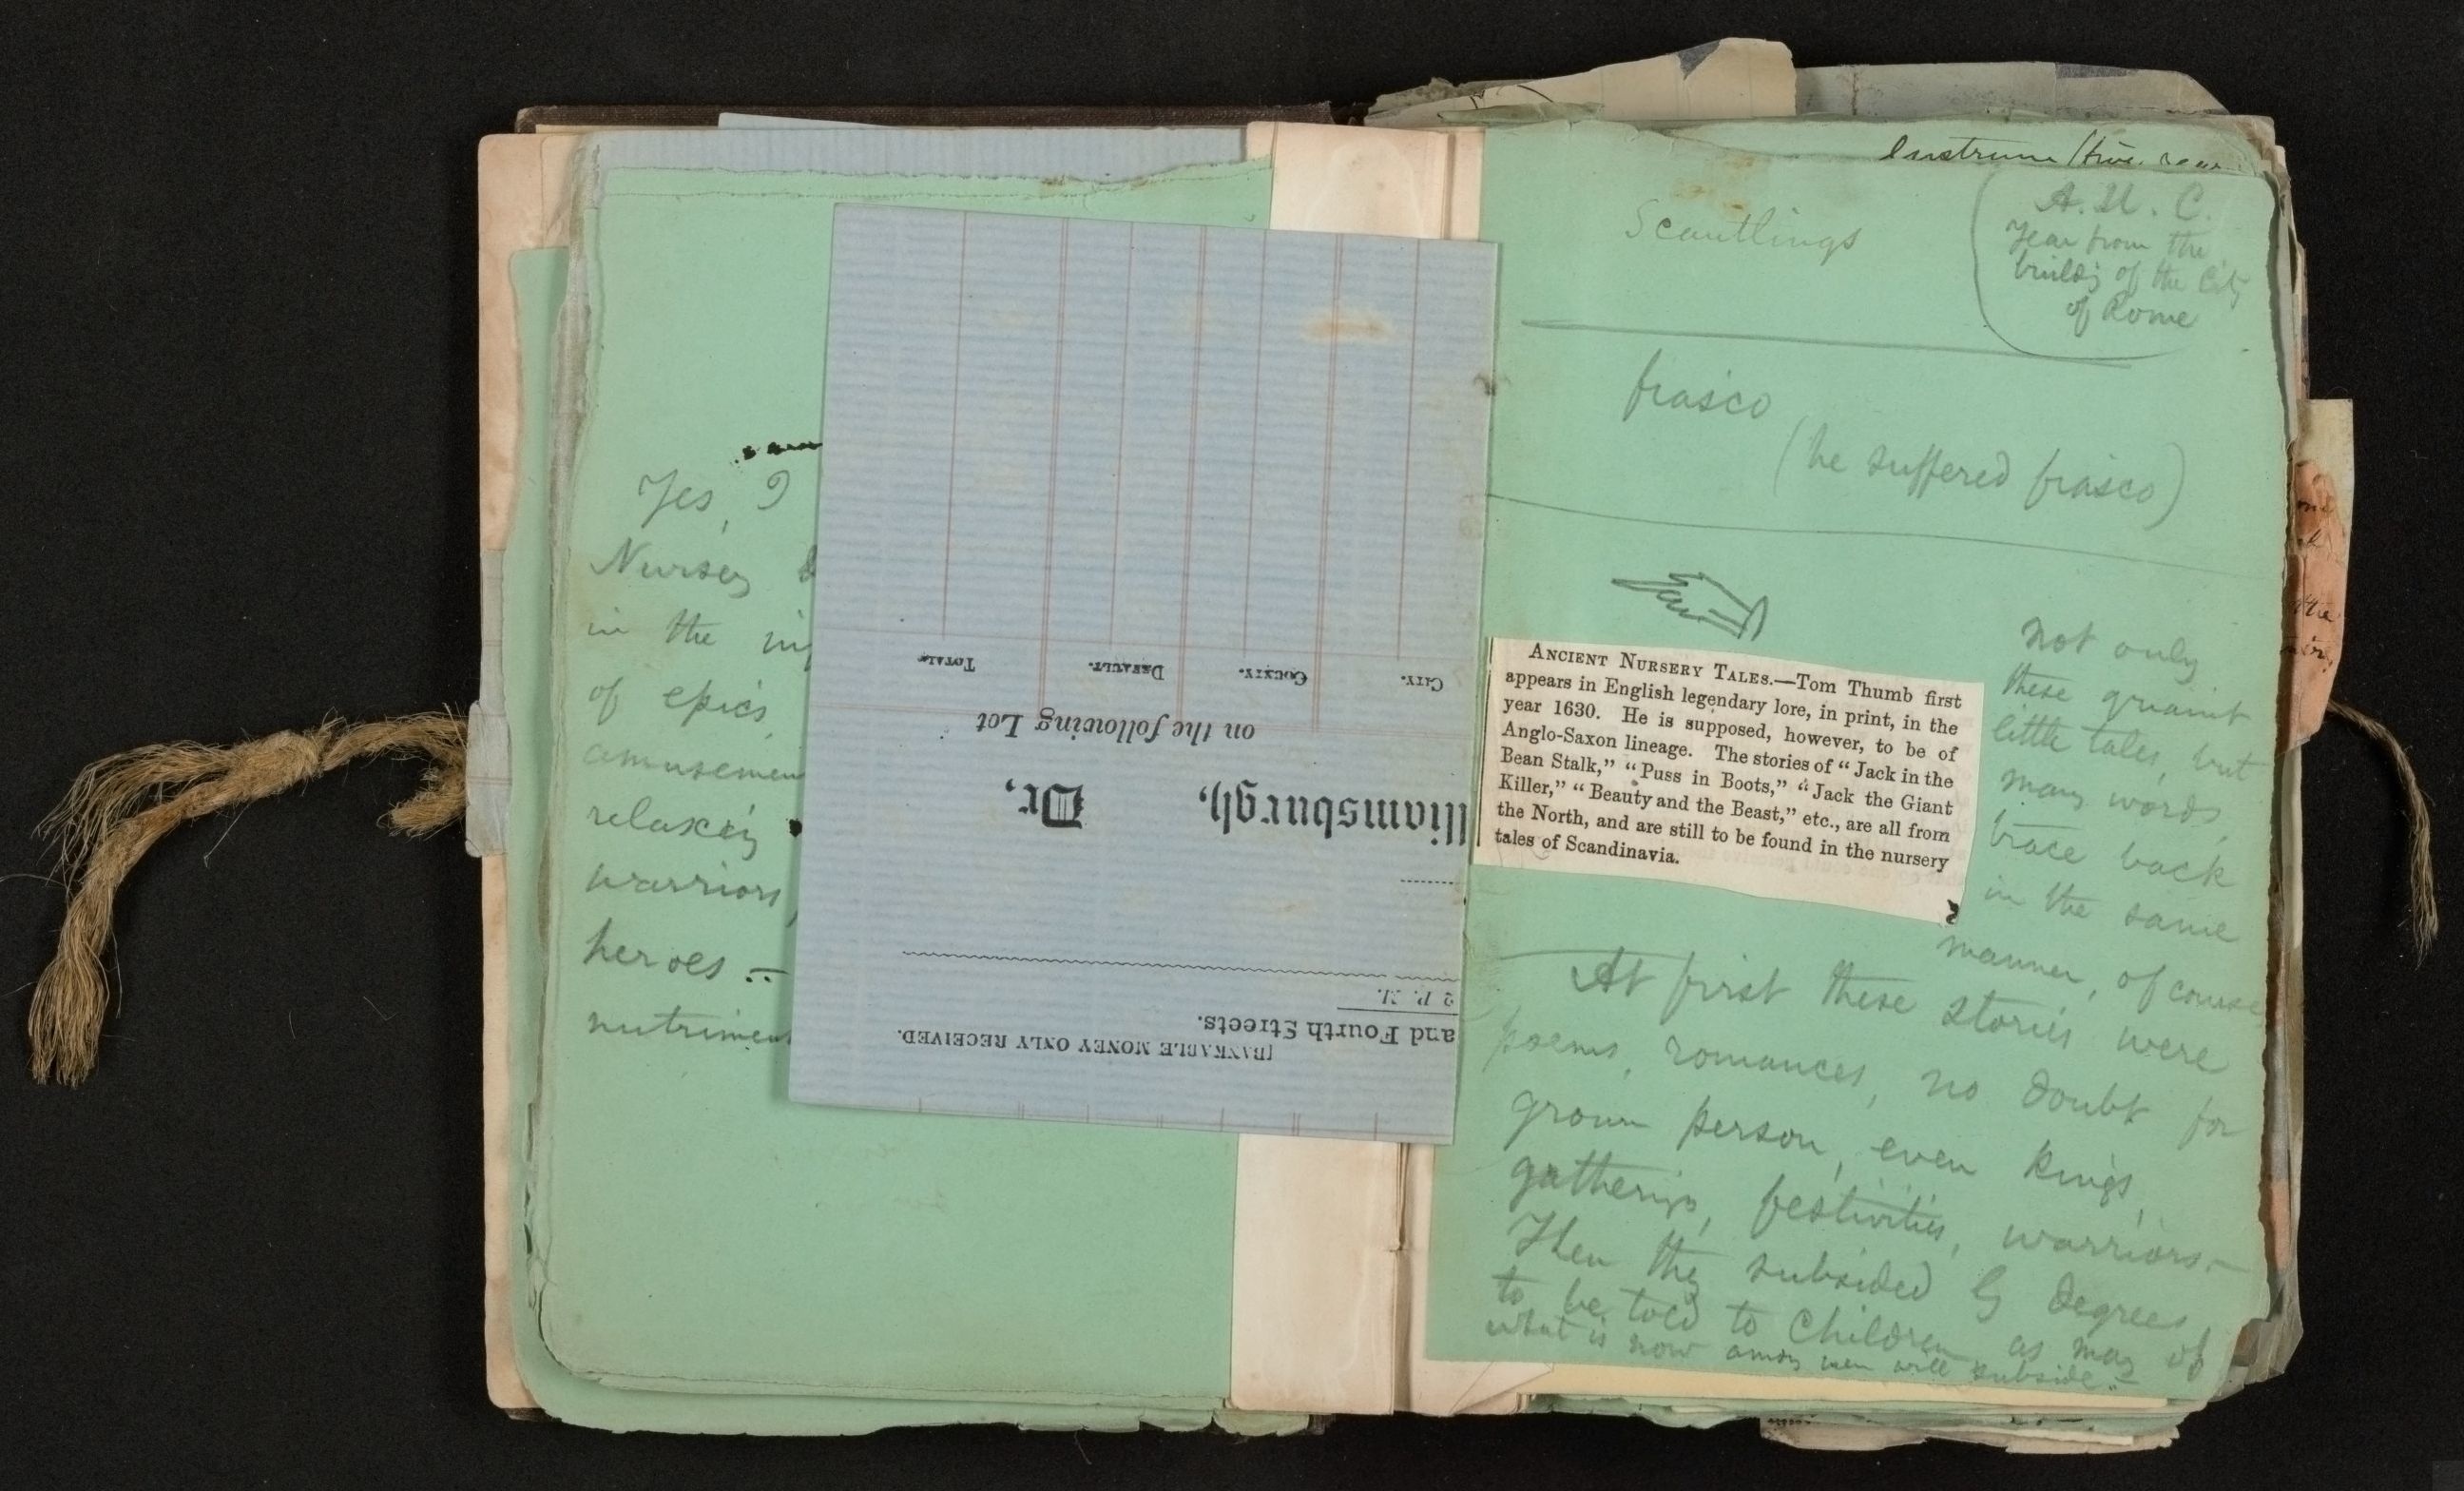 Yes, I
Nursery
in the
of epics,
amusemen
relaxing
warriors,
heroes —
nutrimen
City.
County.
Default.
Total.
on the following Lot
lliamsburgh,
Dr.
2 P. M.
and Fourth Streets.
[BANKABLE MONEY ONLY RECEIVED.
Scantlings
A. U. C.
Year from the
buildg of the City
of Rome
fiasco
(he suffered fiasco)
Ancient Nursery Tales.—Tom Thumb first
appears in English legendary lore, in print, in the
year 1630. He is supposed, however, to be of
Anglo-Saxon lineage. The stories of “Jack in the
Bean Stalk,” “Puss in Boots,” “Jack the Giant
Killer,” “Beauty and the Beast,” etc., are all from
the North, and are still to be found in the nursery
tales of Scandinavia.
not only
these quaint
little tales, but
many words,
trace back
in the same
manner, of course
At first these stories were
poems, romances, no doubt for
grown person, even kings,
gatherings, festivities, warriors.—
Then they subsided by degrees,
to be told to children as may of
what is now among men will subside.—